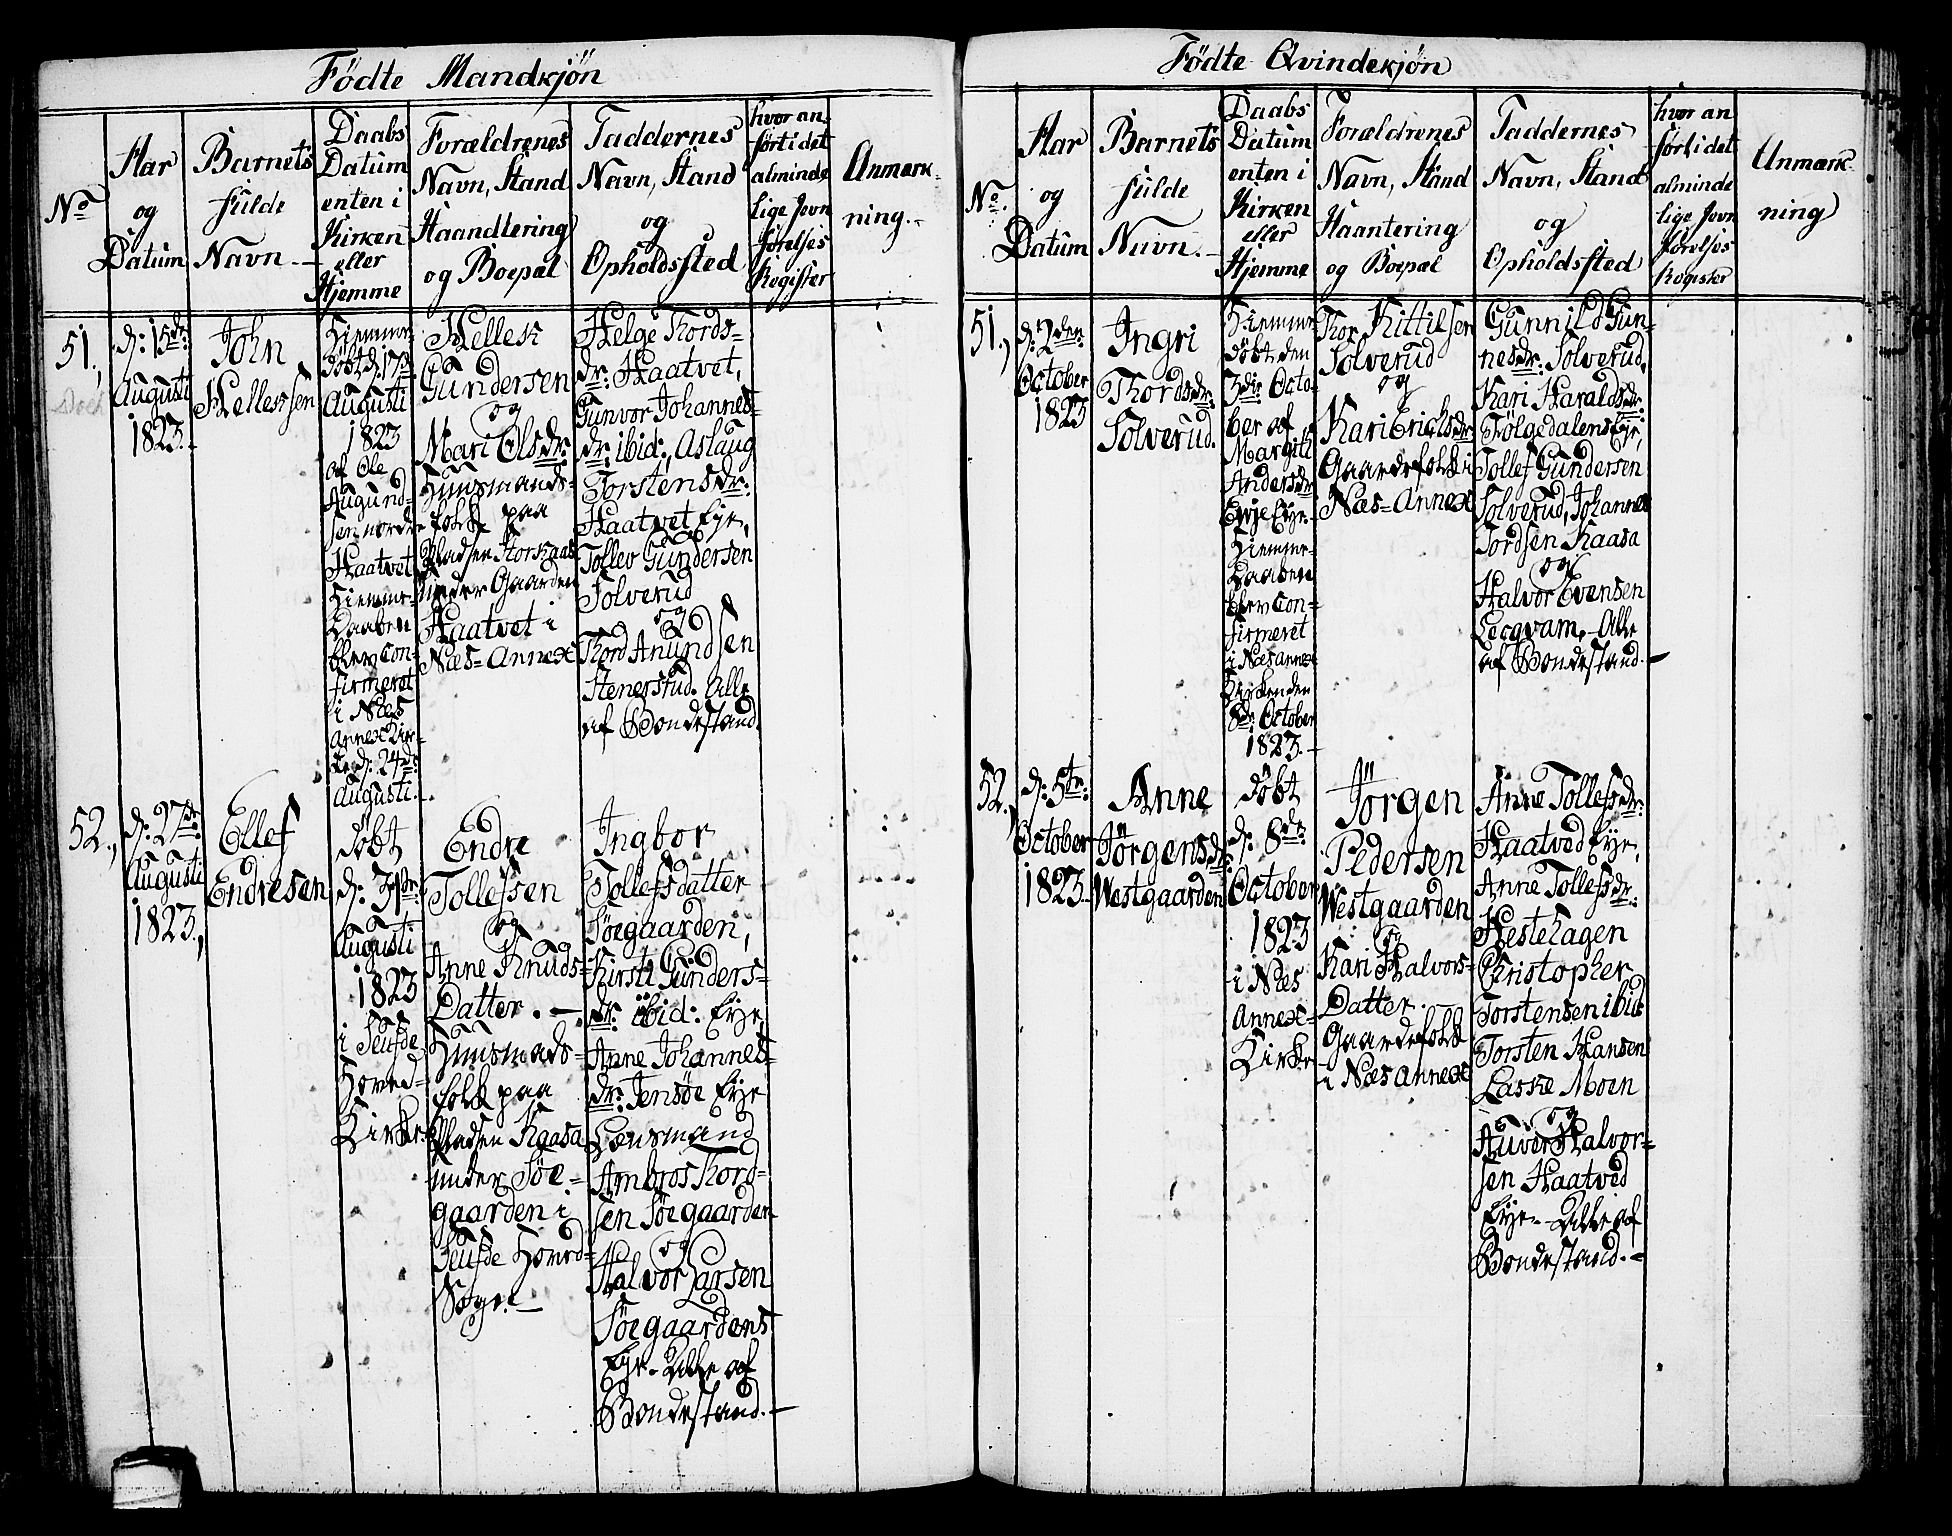 Födte Mandkjön
No
Aar
og
Datum
Barnets
fulde
Navn.
Daabs
Datum
enten i
Kirken
eller
Hjemme
Forældrenes
Navn, Stand
Haandtering
og Boepæl
Faddernes
Navn, Stand
og
Opholdssted
hvor an-
fört i det
alminde
lige Jevn
förelses
Register
Anmærk-
ning.-
51.,
d: 15de:
Augusti
1823.-
John
Hellessen
Hiemme-
döbt d. 17de
Augusti
1823
af Ole
Augund-
sen nordre
Haatvet
Hiemme-
Daaben
blev con-
firmeret
i Næs
Annex Kir-
ke d: 24de:
Augusti.-
Hellek
Gundersen
og
Mari Olsdr:
Huusmands-
folk paa
Pladsen Storkaas
under Gaarden
Haatvet i
Næs-Annex
Helge Thords-
dr: Haatvet,
Gunvor Johannes-
dr: ibid:, Aslaug
Torstensdr:
Haatvet Eye,
Tollev Gundersen
Solverud
og
Thord Anundsen
Stenerstud. Alle
af Bondestand.
52.,
d: 27de:
Augusti
1823.,
Ellef
Endresen
döbt
d: 31te:
Augusti
1823
i Seufde
Hoved-
Kirke
Endre
Tollefsen
og
Anne Knuds-
Datter.-
Huusmads-
folk paa
Pladsen Kaasa
under Söe-
gaarden i
Seufde Hoved-
Sogn.-
Ingbor
Tollefsdatter
Söegaarden,
Kirsti Gunders-
dr: ibid: Eye,
Anne Johannes-
dr: Jensöe Eye
Lensmand
Ambros Thord-
sen Söegaarden
og
Halvor Larsen
Söegaardens
Eye.- Alle af
Bondestand.-
Födte Qvindekjön
No.
Aar
og
Datum
Barnets
fulde
Navn.-
Daabs
Datum
enten i
Kirken
eller
Hjemme
Forældrenes
Navn, Stand
Haantering
og Boepæl
Faddernes
Navn, Stand
og
Opholdssted
hvor an
fört i det
alminde
lige Jevn
förelses
Register
Anmærk-
ning
51.,
d: 2den:
October
1823
Ingri
Thordsdr:
Solverud.
Hiemme
döbt den
3die Octo-
ber af
Margit
Andersdr
Eye.-
Hiemme-
Daaben
blev con-
firmeret
i Næs annex
Kirken den
8de: October
1823.-
Thor Kittilsen
Solverud
og
Kari Erichsdr
Gaardefolk i
Næs-Annex
Gunnild Gun-
nesdr: Solverud,
Kari Haraldsdr:
Fölgedalens Eye,
Tollef Gundersen
Solverud, Johannes
Tordsen Kaasa
og
Halvor Evensen
Legvam.- Alle
af Bondestand.-
52.,
d: 5te:
October
1823.-
Anne
Jörgensdr:
Westgaarden
döbt
d: 8de:
October
1823
i Næs
Annex-
Kirke
Jörgen
Pedersen
Westgaarden
og
Kari Halvors-
Datter.
Gaardefolk
i Næs Annex
Anne Tollefsdr:
Haatved Eye,
Anne Tollefsdr:
Hestehagen
Christopher
Torstensen ibid
Torsten Hansen
Laske Moen
og
Auver Halvor-
sen Haatved
Eye.- Alle af
Bondestand.-